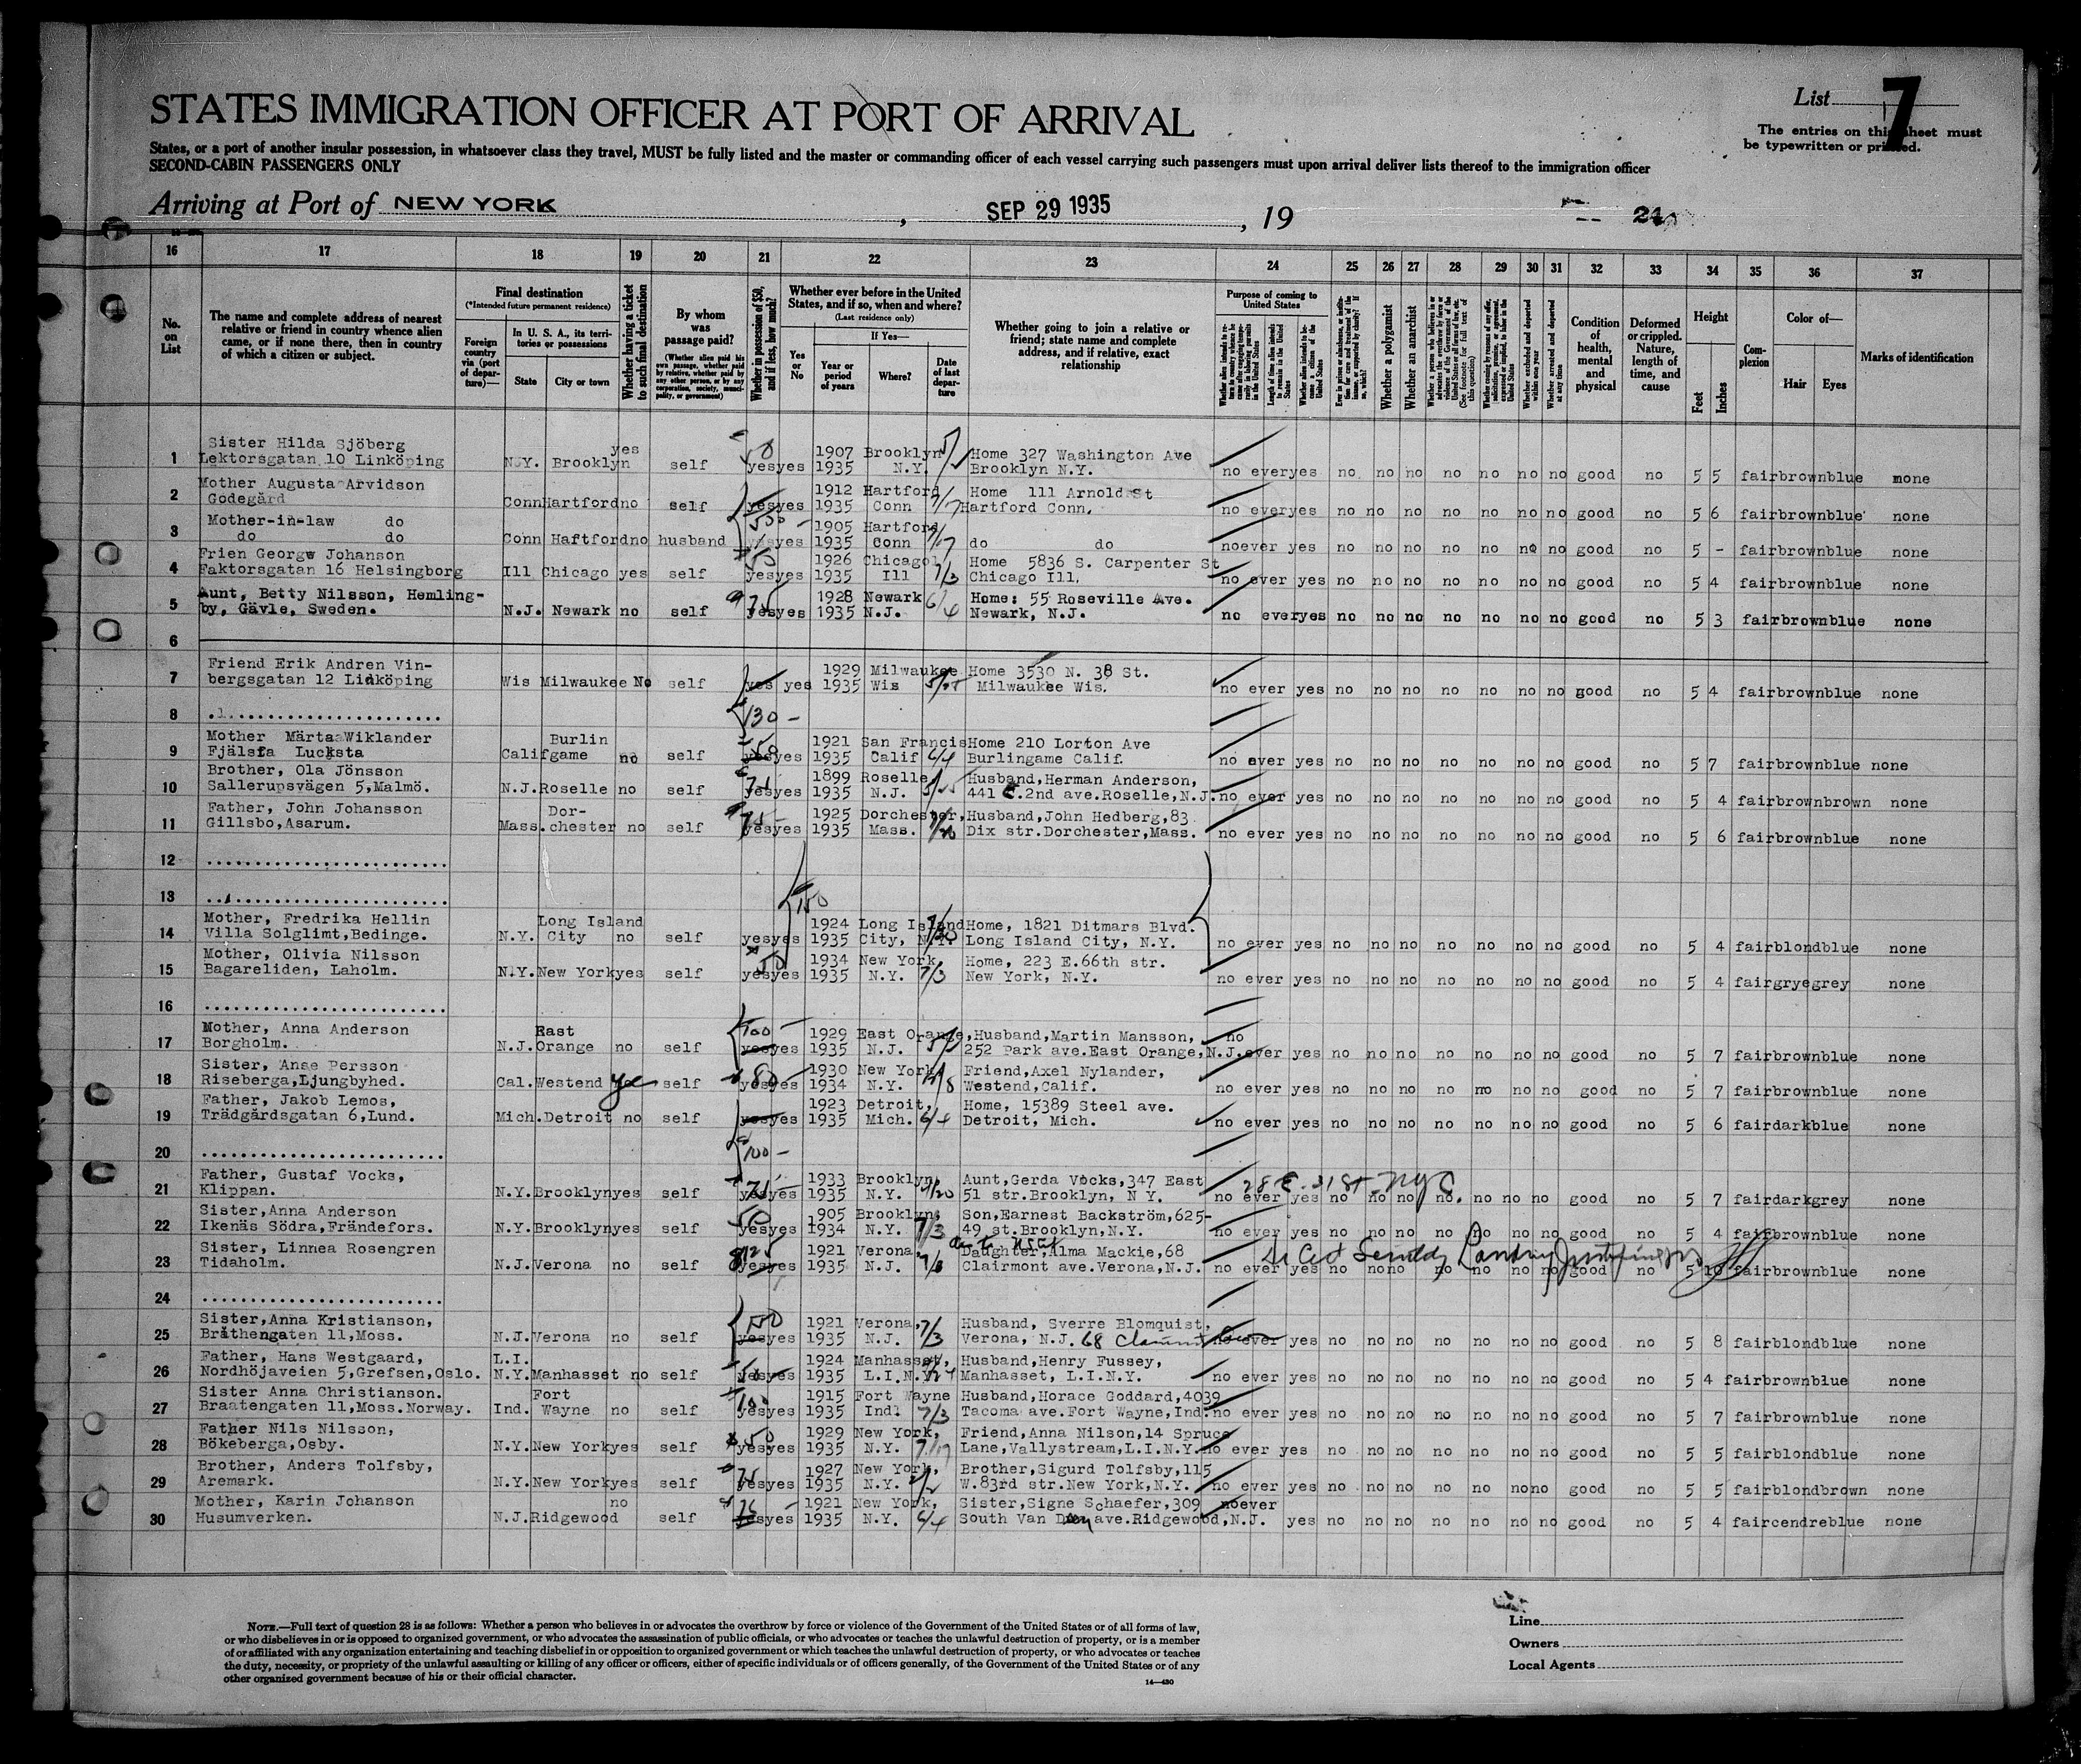 List 7
The entries on this sheet must
be typewritten or printed.
STATES IMMIGRATION OFFICER AT PORT OF ARRIVAL
States, or a port of another insular possession, in whatsoever class they travel, MUST be fully listed and the master or commanding officer of each vessel carrying such passengers must upon arrival deliver lists thereof to the immigration officer
SECOND-CABIN PASSENGERS ONLY
Arriving at Port of NEW YORK, SEP 29 1935, 19 24
16 17 18 19 20 21 22 23 24 25 26 27 28 29 30 31 32 33 34 35 36 37
No. on List
The name and complete address of nearest
relative or friend in country whence alien
came, or if none there, then in country
of which a citizen or subject.
Final destination
(*Intended future permanent residence)
Foreign country via (port of departure)—
In U. S. A., its territories or possessions
State
City or town
Whether having a ticket to such final destination
By whom was passage paid?
(Whether alien paid his own passage, whether paid by relative, whether paid by any other person, or by any corporation, society, municipality, or government)
Whether in possession of $50, and if less, how much?
Whether ever before in the United
States, and if so, when and where?
(Last residence only)
Yes or No
If Yes—
Year or period of years
Where?
Date of last departure
Whether going to join a relative or
friend; state name and complete
address, and if relative, exact
relationship
Purpose of coming to United States
Length of time alien intends to remain in the United States
Whether alien intends to become a citizen of the United States
Whether a polygamist
Whether an anarchist
Whether excluded and deported within one year
Whether arrested and deported at any time
Condition of health, mental and physical
Deformed or crippled. Nature, length of time, and cause
Height
Feet
Inches
Complexion
Color of—
Hair
Eyes
Marks of identification
Sister Hilda Sjöberg yes 50 1907 Brooklyn Home 327 Washington Ave
1 Lektorsgatan 10 Linköping N.Y. Brooklyn self yesyes 1935 N.Y. Brooklyn N.Y. no everyes no no no no no no no good no 5 5 fairbrownblue none
Mother Augusta Arvidson 1912 Hartford Home 111 Arnold St
2 Godegärd ConnHartfordno self yesyes 1935 Conn 7/7 Hartford Conn. no everyes no no no no no no no good no 5 6 fairbrownblue none
Mother-in-law do 550 - 1905 Hartford
3 do do Conn Haftfordno husband yesyes 1935 Conn 7/17 do do noever yes no no no no no no no good no 5 - fairbrownblue none
Frien Georgw Johanson 50 1926 Chicago Home 5836 S. Carpenter St
4 Faktorsgatan 16 Helsingborg Ill Chicago yes self yesyes 1935 Ill 7/3 Chicago Ill. no ever yes no no no no no no no good no 5 4 fairbrownblue none
Aunt, Betty Nilsson, Hemling- 75 1928 Newark 6/6 Home: 55 Roseville Ave.
5 by, Gävle, Sweden. N.J. Newark no self yesyes 1935 N.J. Newark, N.J. no everyes no no no no no no no good no 5 3 fairbrownblue none
6
Friend Erik Andren Vin- 1929 Milwaukee Home 3530 N. 38 St.
7 bergsgatan 12 Lidköping Wis Milwaukee No self yes yes 1935 Wis Milwaukee Wis. no ever yes no no no no no no no good no 5 4 fairbrownblue none
8 ........................ 130 -
Mother Märta Wiklander Burlin 50 1921 San FrancisHome 210 Lorton Ave
9 Fjälsta Lucksta Califgame no self yesyes 1935 Calif 6/4 Burlingame Calif. no ever yes no no no no no no no good no 5 7 fairbrownblue none
Brother, Ola Jönsson 1899 Roselle, Husband,Herman Anderson,
10 Sallerupsvägen 5,Malmö. N.J.Roselle no self yesyes 1935 N.J. 441 E.2nd ave.Roselle,N.J. no ever yes no no no no no no no good no 5 4 fairbrownbrown none
Father, John Johansson Dor- 75- 1925 Dorchester,Husband,John Hedberg,83
11 Gillsbo,Asarum. Mass.chester no self yesyes 1935 Mass. Dix str.Dorchester,Mass. no ever yes no no no no no no no good no 5 6 fairbrownblue none
12 ........................
13 ........................ 150
Mother, Fredrika Hellin Long Island 1924 Long IslandHome, 1821 Ditmars Blvd.
14 Villa Solglimt,Bedinge. N.Y. City no self yesyes 1935 City, N.Y. Long Island City, N.Y. no ever yes no no no no no no no good no 5 4 fairblondblue none
Mother, Olivia Nilsson 50 1934 New York, Home, 223 E.66th str.
15 Bagareliden, Laholm. N.Y.New Yorkyes self yesyes 1935 N.Y. 7/3 New York, N.Y. no ever yes no no no no no no no good no 5 4 fairgryegrey none
16 ........................
Mother, Anna Anderson East 100 - 1929 East Orange,Husband,Martin Mansson, no
17 Borgholm. N.J.Orange no self yesyes 1935 N.J. 252 Park ave.East Orange,N.J.ever yes no no no no no no no good no 5 7 fairbrownblue none
Sister, Anae Persson 80- 1930 New York Friend,Axel Nylander,
18 Riseberga,Ljungbyhed. Cal.Westend yes self yesyes 1934 N.Y. Westend,Calif. no ever yes no no no no no no no good no 5 7 fairbrownblue none
Father, Jakob Lemos, 1923 Detroit, Home, 15389 Steel ave.
19 Trädgärdsgatan 6,Lund. Mich.Detroit no self yesyes 1935 Mich. 6/4 Detroit, Mich. no ever yes no no no no no no no good no 5 6 fairdarkblue none
20 ........................ 100 -
Father, Gustaf Vocks, 1933 Brooklyn, Aunt,Gerda Vocks,347 East 28 E. 31 St. NYC
21 Klippan. N.Y.Brooklynyes self yesyes 1935 N.Y. 51 str.Brooklyn, N Y. no ever yes no no no no. no no no good no 5 7 fairdarkgrey none
Sister,Anna Anderson 50 905 Brooklyn, Son,Earnest Backström,625-
22 Ikenäs Södra,Frändefors. N.Y.Brooklynyes self yesyes 1934 N.Y. 7/3 49 st.Brooklyn,N.Y. no ever yes no no no no no no no good no 5 4 fairbrownblue none
Sister, Linnea Rosengren 1921 Verona, Daughter,Alma Mackie,68
23 Tidaholm. N.J.Verona no self yesyes 1935 N.J. Clairmont ave.Verona,N.J. no ever yes no nono no no no no good no 5 10 fairbrownblue none
24 ........................
Sister,Anna Kristianson, 150 1921 Verona, Husband, Sverre Blomquist,
25 Bråthengaten 11,Moss. N.J.Verona no self yesyes 1935 N.J. 7/3 Verona, N.J. 68 no ever yes no no no no no no no good no 5 8 fairblondblue none
Father, Hans Westgaard, L.I. 1924 Manhasset, Husband,Henry Fussey,
26 Nordhöjaveien 5,Grefsen,Oslo. N.Y.Manhasset no self yesyes 1935 L.I.N.Y. Manhasset, L.I.N.Y. no ever yes no no no no no no no good no 5 4 fairbrownblue none
Sister Anna Christianson. Fort 100 1915 Fort Wayne Husband,Horace Goddard,4039
27 Braatengaten 11,Moss.Norway. Ind. Wayne no self yesyes 1935 Ind. 7/3 Tacoma ave.Fort Wayne,Ind. no ever yes no no no no no no no good no 5 7 fairbrownblue none
Father Nils Nilsson, 50 1929 New York, Friend,Anna Nilson,14 Spruce
28 Bökeberga,Osby. N.Y.New Yorkyes self yesyes 1935 N.Y. 7/17 Lane,Vallystream,L.I.N.Y. no ever yes no no no no no no no good no 5 5 fairblondblue none
Brother, Anders Tolfsby, 75 1927 New York, Brother,Sigurd Tolfsby,115
29 Aremark. N.Y.New Yorkyes self yesyes 1935 N.Y. W.83rd str.New York,N.Y. no ever yes no no no no no nono good no 5 5 fairblondbrown none
Mother, Karin Johanson no 1921 New York, Sister,Signe Schaefer,309 noever
30 Husumverken. N.J.Ridgewood self yesyes 1935 N.Y. 6/4 South Van ave.Ridgewood,N.J. yes no no no no no no no good no 5 4 faircendreblue none
NOTE.—Full text of question 28 is as follows: Whether a person who believes in or advocates the overthrow by force or violence of the Government of the United States or of all forms of law,
or who disbelieves in or is opposed to organized government, or who advocates the assassination of public officials, or who advocates or teaches the unlawful destruction of property, or is a member
of or affiliated with any organization entertaining and teaching disbelief in or opposition to organized government or which teaches the unlawful destruction of property, or who advocates or teaches
the duty, necessity, or propriety of the unlawful assaulting or killing of any officer or officers, either of specific individuals or of officers generally, of the Government of the United States or of any
other organized government because of his or their official character.
14—430
Line
Owners
Local Agents